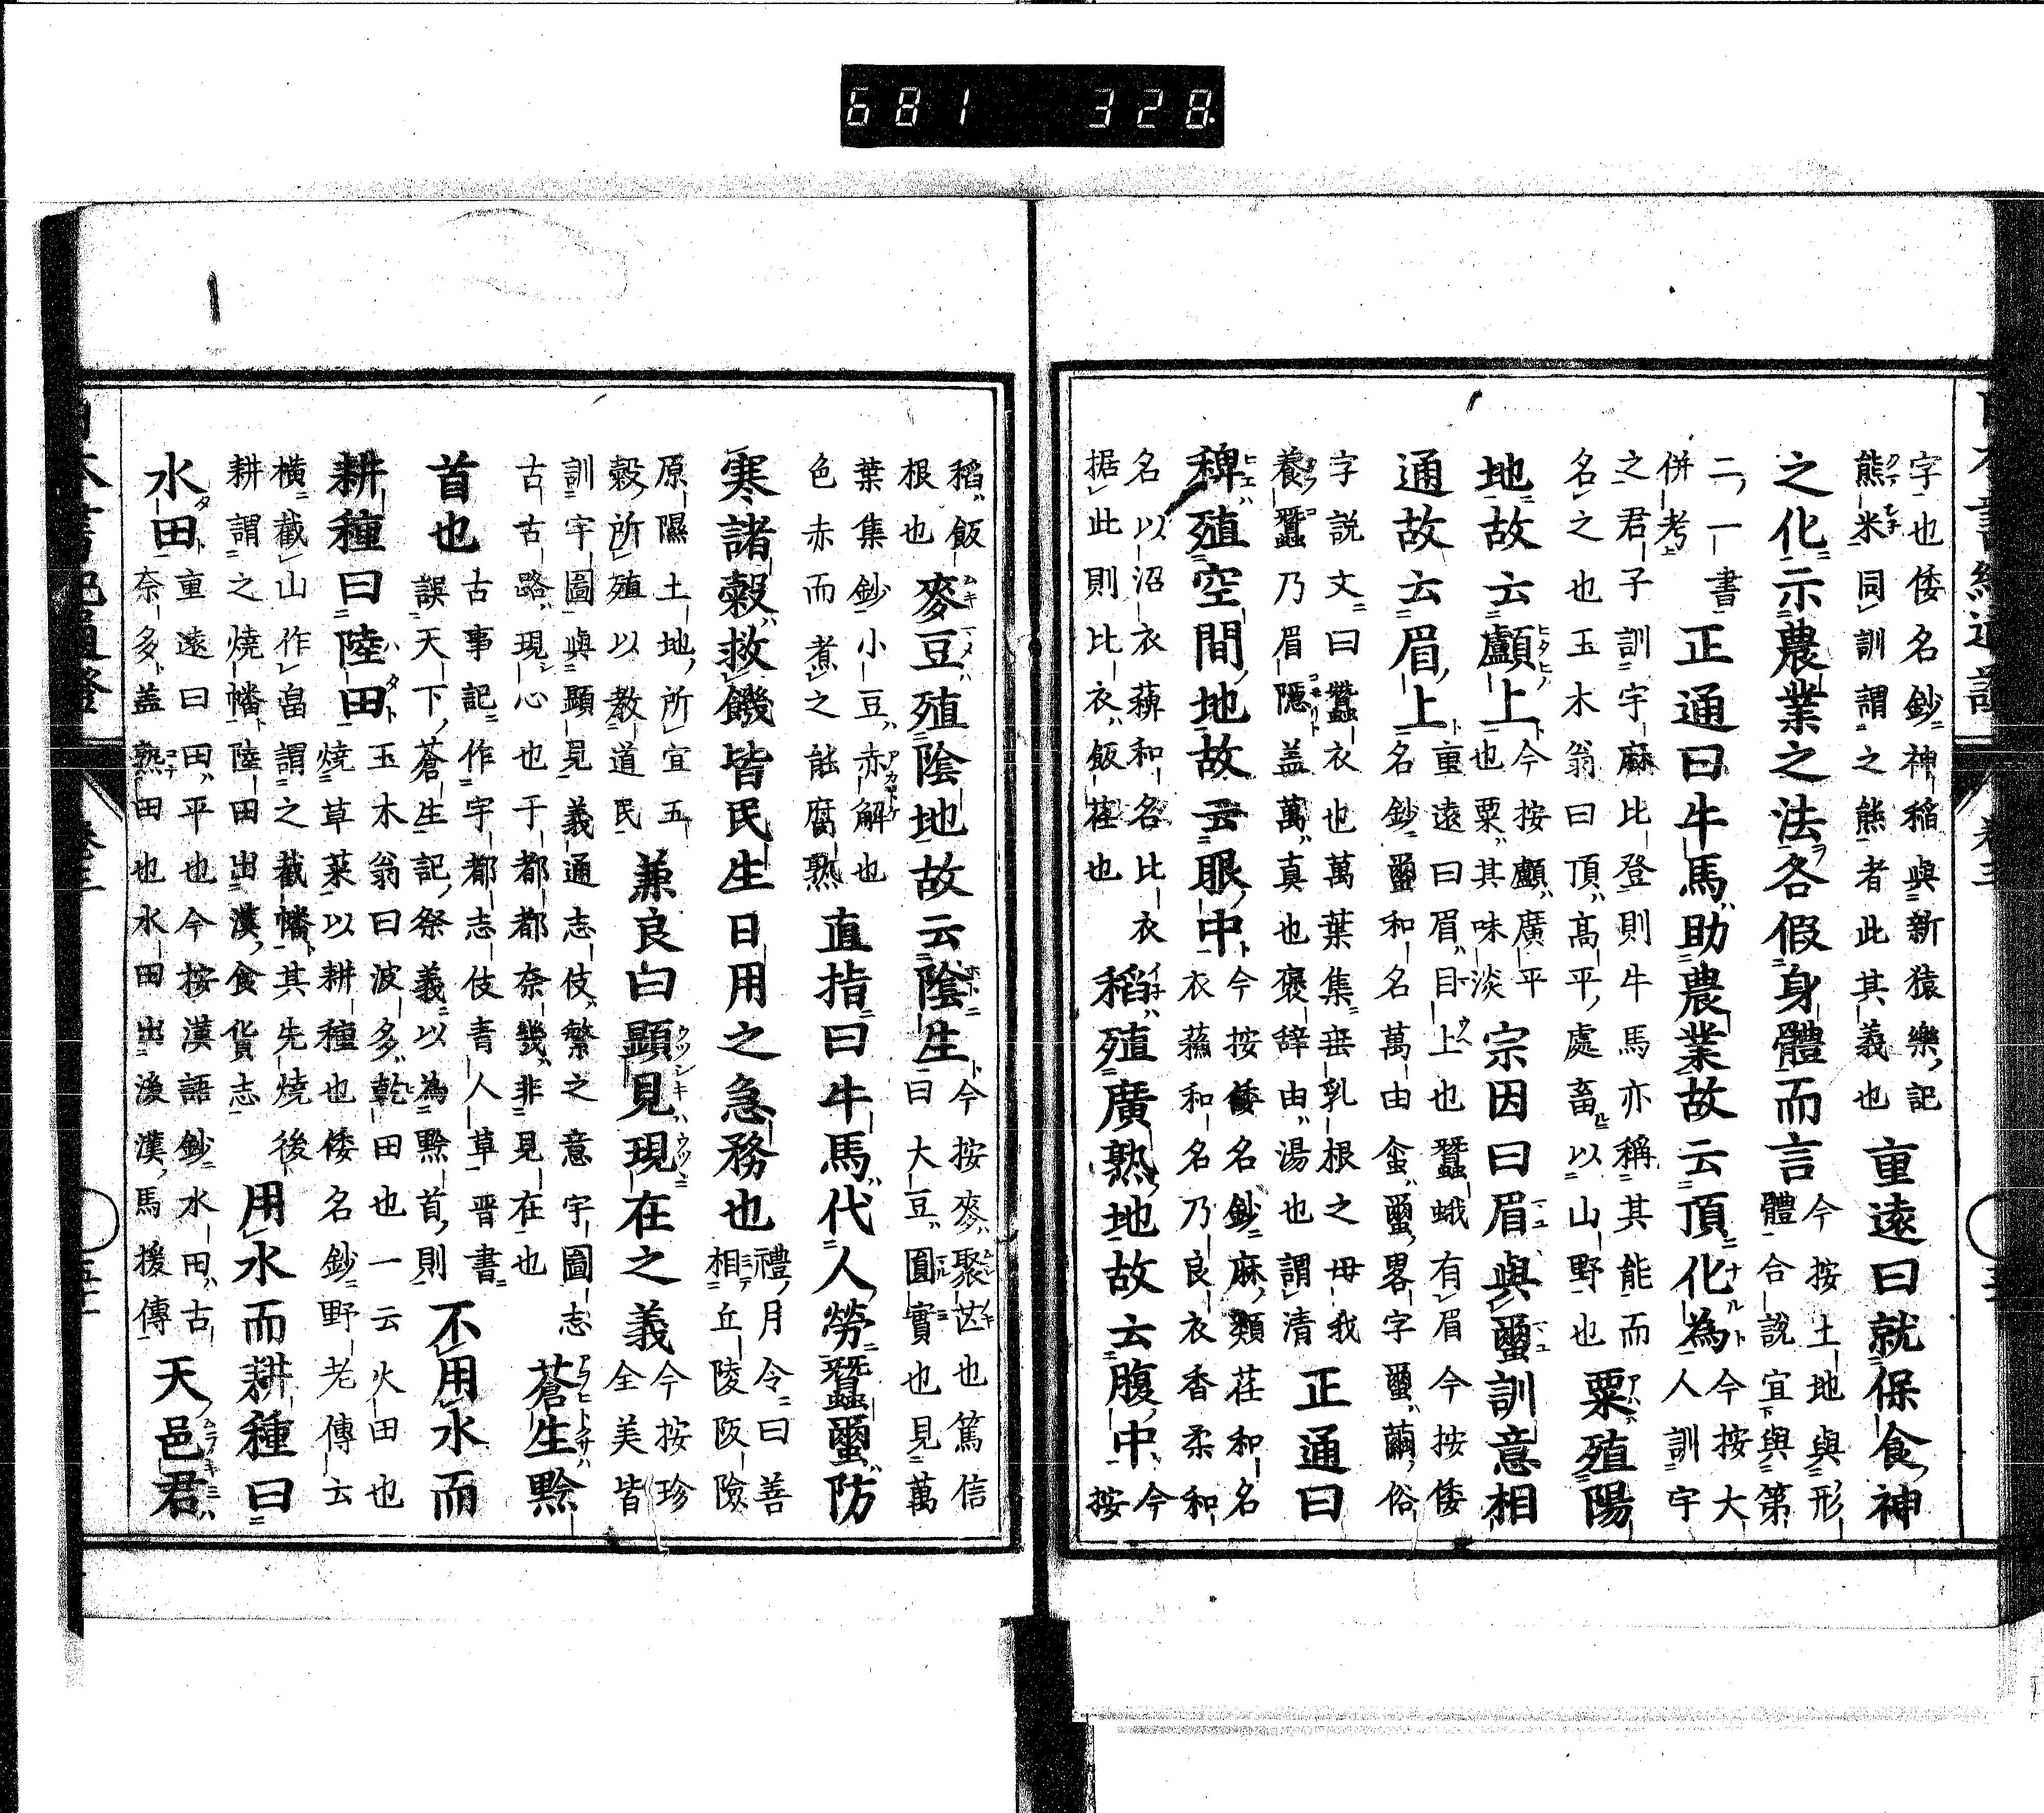 字也倭名鈔神稲與新猿樂記
熊米同訓謂之熊者此其義也
重遠曰就保食神
之化示農業之法各假身體而言
今按土地與形
體合說宜與第
二一書
併考
正通曰牛馬助農業故云頂化為
今按大
人訓宇
之君子訓宇麻比登則牛馬亦稱其能而
名之也玉木翁曰頂高平處畜以山野也
粟殖陽
地故云顱上
今按顱廣平
也粟其味淡
宗因曰眉與蠒訓意相
通故云眉上
重遠曰眉目上也蠶蛾有眉今按倭
名鈔蠒和名萬由畧字蠒繭俗
字說文曰蠶衣也萬葉集垂乳根之母我
養蠶乃眉隱盖萬真也褒辞由湯也謂清
正通曰
稗殖空間地故云眼中
今按倭名鈔麻類荏和名
衣蘓和名乃良衣香柔和
名以沼衣蘓和名比衣
据此則比衣飯荏也
稻殖廣熟地故云腹中
今
按
稻飯
根也
麥豆殖陰地故云陰生
今按麥聚芒也篤信
曰大豆圓實也見萬
葉集鈔小豆赤解也
色赤而煮之能腐熟
直指曰牛馬代人勞蠶蠒防
寒諸穀救饑皆民生日用之急務也
禮月令曰善
相丘陵阪險
原隰土地所宜五
穀所殖以教道民
兼良曰顯見現在之義
今按珍
全美皆
訓宇圖與顯見義通志伎繁之意宇圖志
古古路現心也于都都奈幾非見在也
蒼生黔
首也
古事記作宇都志伎青人草晋書
誤天下蒼生記祭義以為黔首則
不用水而
耕種曰陸田
玉木翁曰波多乾田也一云火田也
燒草菜以耕種也倭名鈔野老傳云
横截山作畠謂之截幡其先燒後
耕謂之燒幡陸田出漢食貨志
用水而耕種曰
水田
重遠曰田平也今按漢語鈔水田古
奈多盖熟田也水田出後漢馬援傳
天邑君